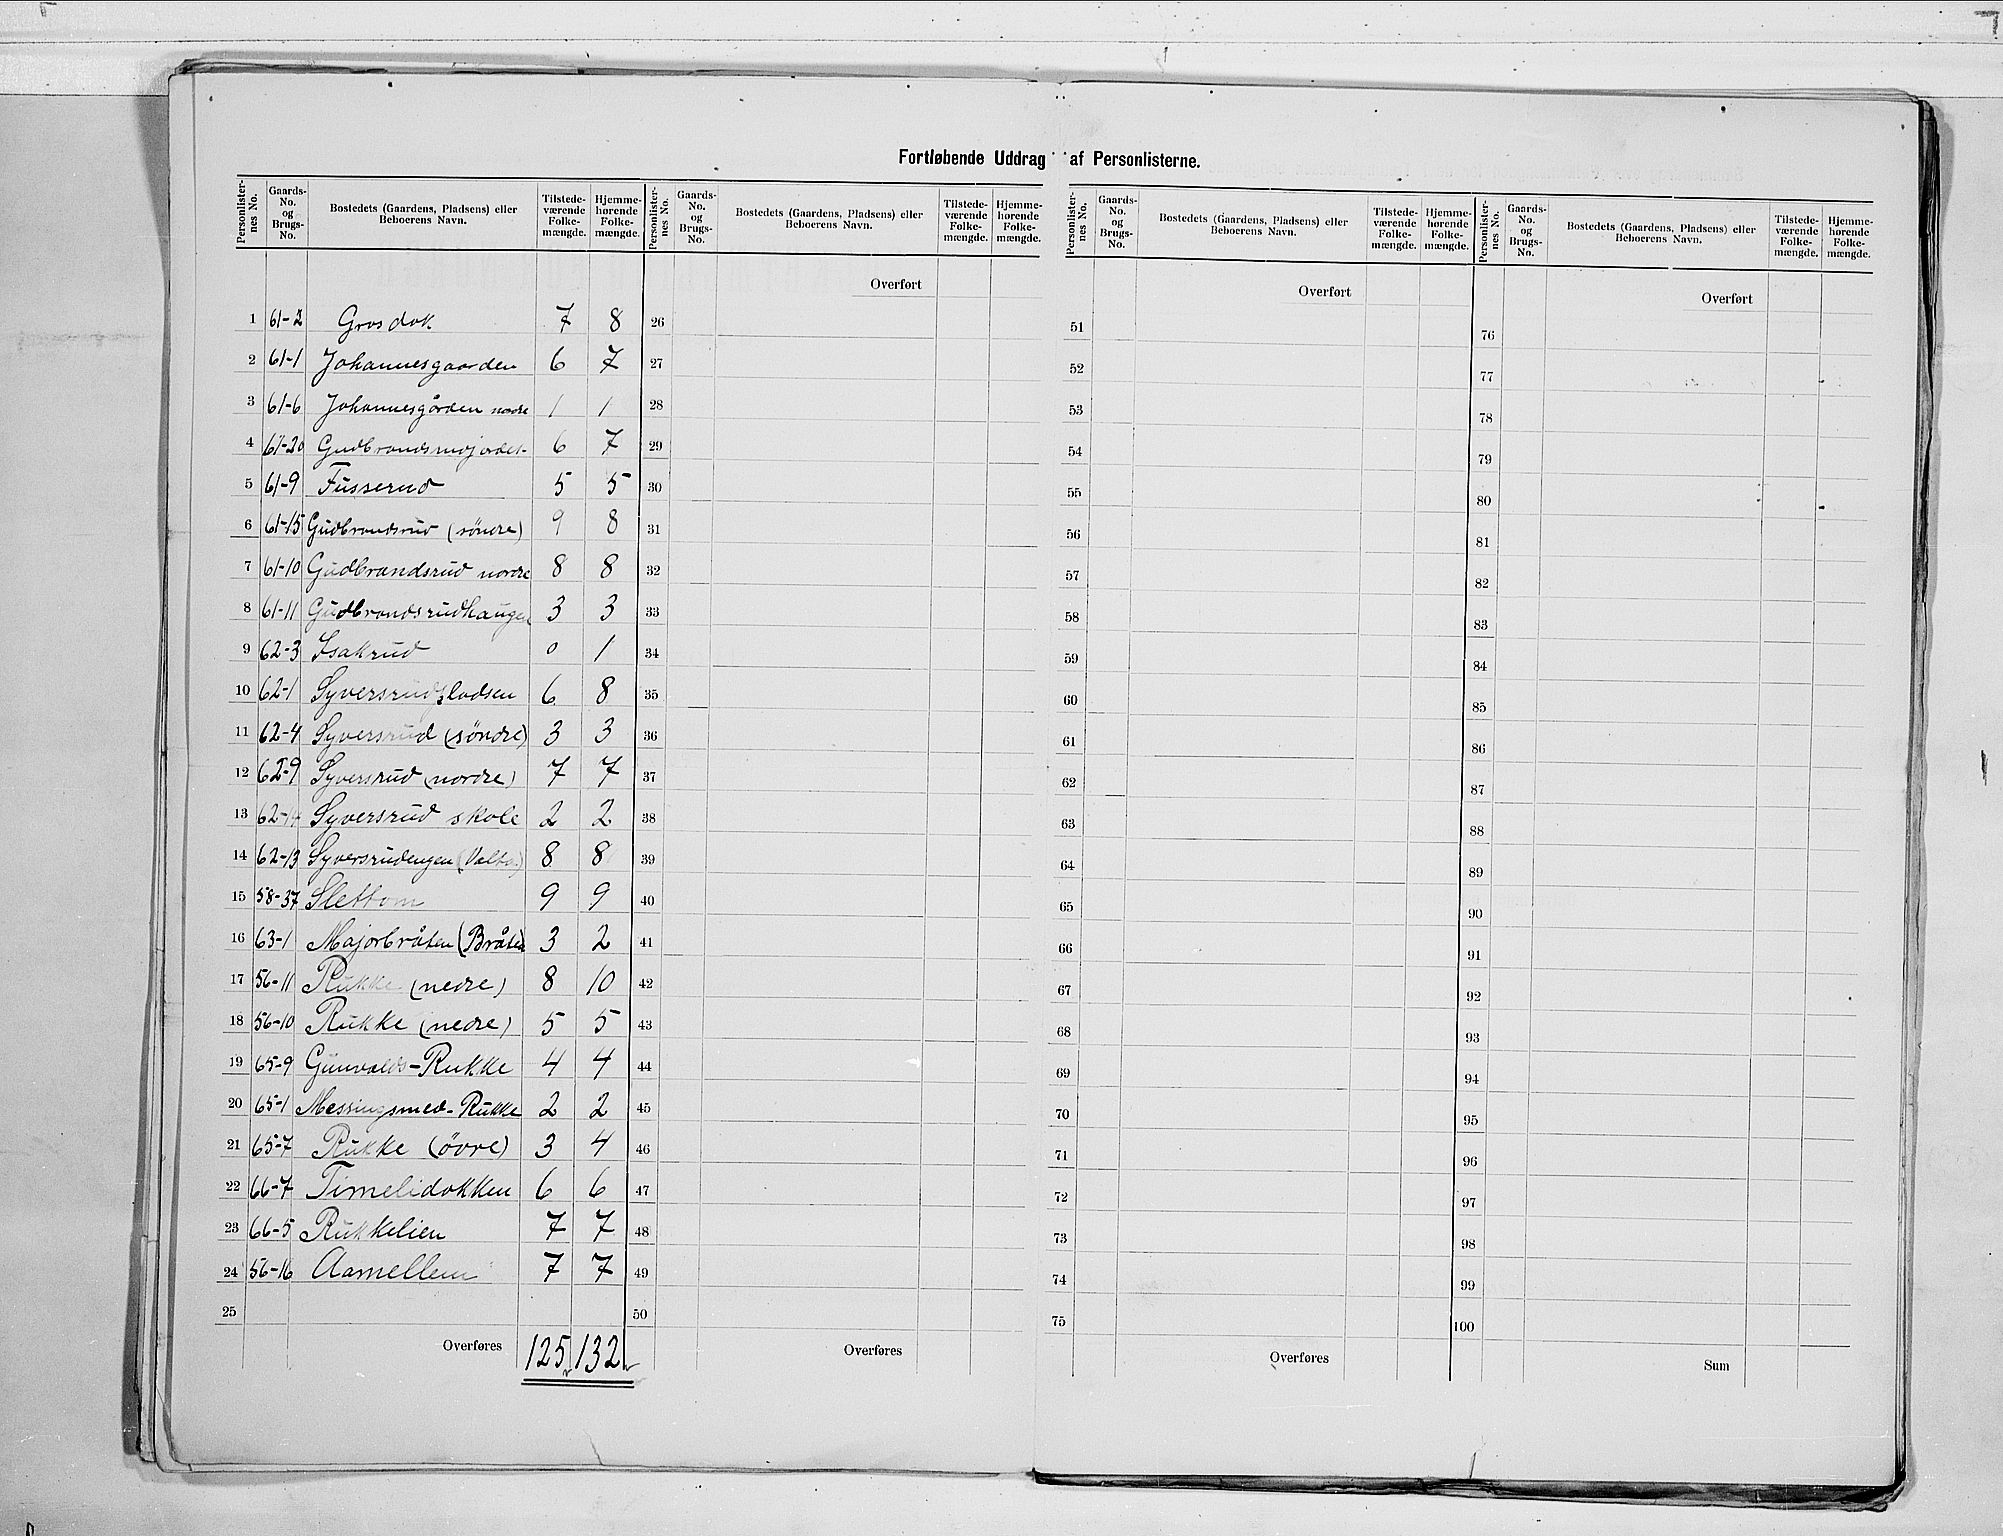 Fortløbende Uddrag af Personlisterne.
Personlisternes No. Gaards-No. og Brugs-No. Bostedets (Gaardens, Pladsens) eller Beboerens Navn. Tilstedeværende Folkemængde. Hjemmehørende Folkemængde. Personlisternes No. Gaards-No. og Brugs-No. Bostedets (Gaardens, Pladsens) eller Beboerens Navn. Tilstedeværende Folkemængde. Hjemmehørende Folkemængde. Personlisternes No. Gaards-No. og Brugs-No. Bostedets (Gaardens, Pladsens) eller Beboerens Navn. Tilstedeværende Folkemængde. Hjemmehørende Folkemængde. Personlisternes No. Gaards-No. og Brugs-No. Bostedets (Gaardens, Pladsens) eller Beboerens Navn. Tilstedeværende Folkemængde. Hjemmehørende Folkemængde.
Overført Overført Overført
1 61-2 Grosdok 7 8 26 51 76
2 61-1 Johannesgaarden 6 7 27 52 77
3 61-6 Johannesgården nordre 1 1 28 53 78
4 61-20 6 7 29 54 79
5 61-9 Fusserud 5 5 30 55 80
6 61-15 Gudbrandsrud (söndre) 9 8 31 56 81
7 61-10 Gudbrandsrud nordre 8 8 32 57 82
8 61-11 Gudbrandsrudhaugen 3 3 33 58 83
9 62-3 Isakrud 0 1 34 59 84
10 62-1 6 8 35 60 85
11 62-4 Syversrud (söndre) 3 3 36 61 86
12 62-9 Syversrud (nordre) 7 7 37 62 87
13 62-14 Syversrud skole 2 2 38 63 88
14 62-13 Syversrudengen 8 8 39 64 89
15 58-37 Slettom 9 9 40 65 90
16 63-1 Majorbråten (Bråten 3 2 41 66 91
17 56-11 Rukke (nedre) 8 10 42 67 92
18 56-10 Rukke (nedre) 5 5 43 68 93
19 65-9 Gunvalds-Rukke 4 4 44 69 94
20 65-1 Messingsmed-Rukke 2 2 45 70 95
21 65-7 Rukke (övre) 3 4 46 71 96
22 66-7 Timelidokken 6 6 47 72 97
23 66-5 Rukkelien 7 7 48 73 98
24 56-16 Aamellem 7 7 49 74 99
25 50 75 100
Overføres 125 132 Overføres Overføres Sum